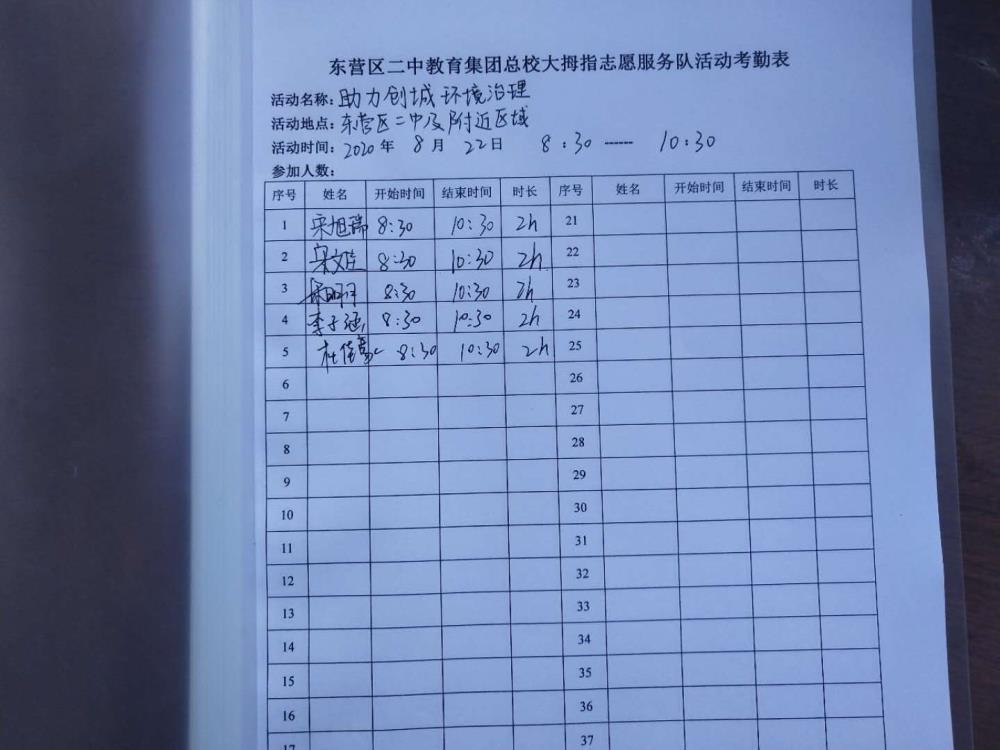 东营区二中教育集团总校大拇指志愿服务队活动考勤表
活动名称：助力创城 环境治理
活动地点：东营区二中及附近区域
活动时间：2020年 8月 22日 8:30 ------ 10:30
参加人数：
序号 姓名 开始时间 结束时间 时长 序号 姓名 开始时间 结束时间 时长
1 宋旭瑞 8:30 10:30 2h 21
2 8:30 10:30 2h 22
3 8:30 10:30 2h 23
4 李子涵 8:30 10:30 2h 24
5 8:30 10:30 2h 25
6 26
7 27
8 28
9 29
10 30
11 31
12 32
13 33
14 34
15 35
16 36
17 37